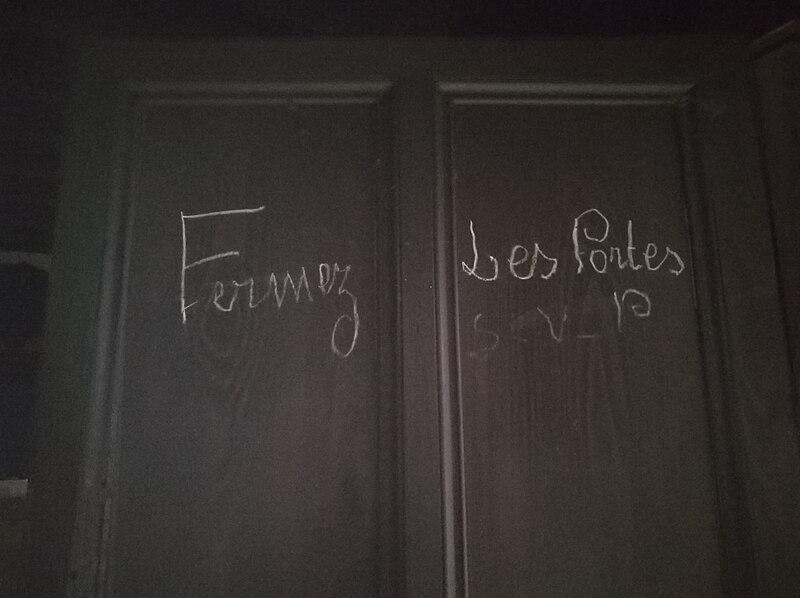 Fermez Les Portes
s-v-P